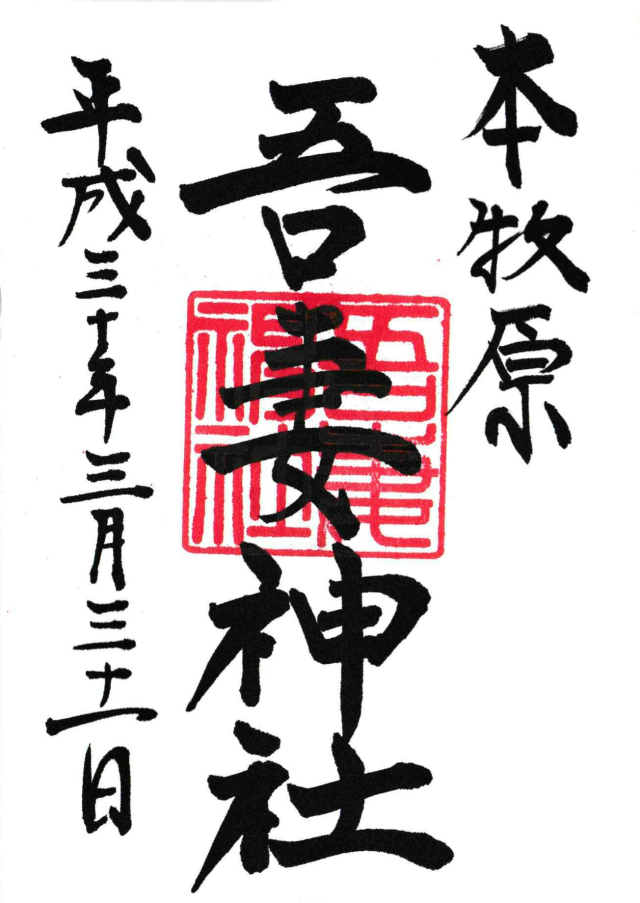 本牧原
吾妻神社
吾妻神社
平成三十年三月三十一日